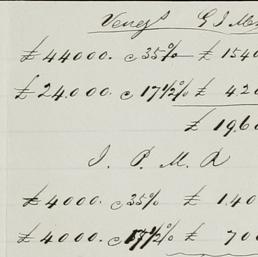 Venezs G I Mer
£44000. @ 35% £ 1540
£24.000. @ 17 1/2% £ 420
£ 19.60
I. P. M. R
£ 4000. @ 35% £ 1.40
£ 4000. @ 17 1/2% £ 700